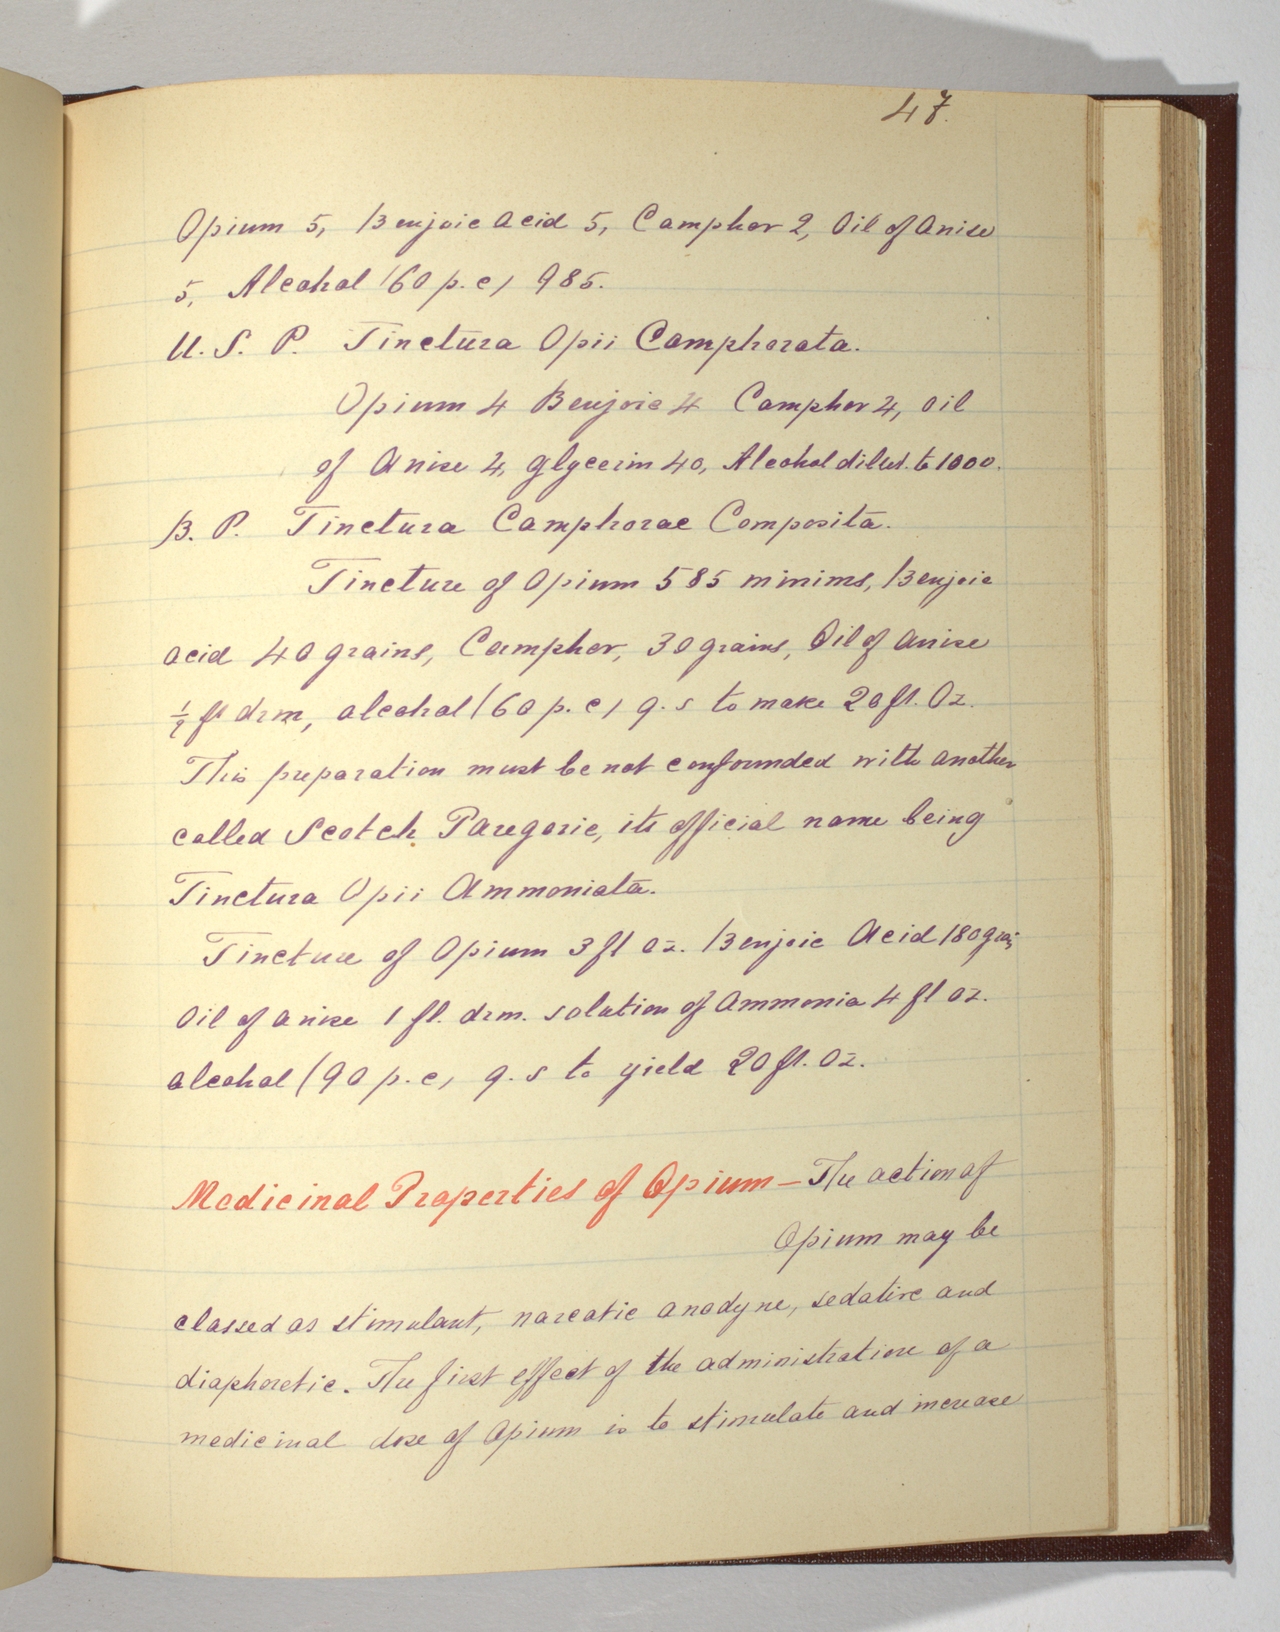 47.
Opium 5, Benzoic Acid 5, Camphor 2, Oil of Anise
5, Alcohol (60 p. c) 985.
U. S. P. Tinctura Opii Camphorata.
Opium 4 Benzoic 4 Camphor 4, Oil
of Anise 4, glycerin 40, Alcohol dilut. to 1000.
B. P. Tinctura Camphorae Composita.
Tincture of Opium 585 minims, Benzoic
acid 40 grains, Camphor, 30 grains, Oil of Anise
½ fl drm, alcohol (60 p. c) q. s to make 20 fl. Oz.
This preparation must be not confounded with another
called Scotch Paregoric, its official name being
Tinctura Opii Ammoniata.
Tincture of Opium 3 fl oz. Benzoic Acid 180 grai;
Oil of anise 1 fl. drm. solution of Ammonia 4 fl oz.
alcohol (90 p. c, q. s to yield 20 fl. Oz.
Medicinal Properties of Opium — The action of
Opium may be
classed as stimulant, narcotic anodyne, sedative and
diaphoretic. The first effect of the administration of a
medicinal dose of Opium is to stimulate and increase